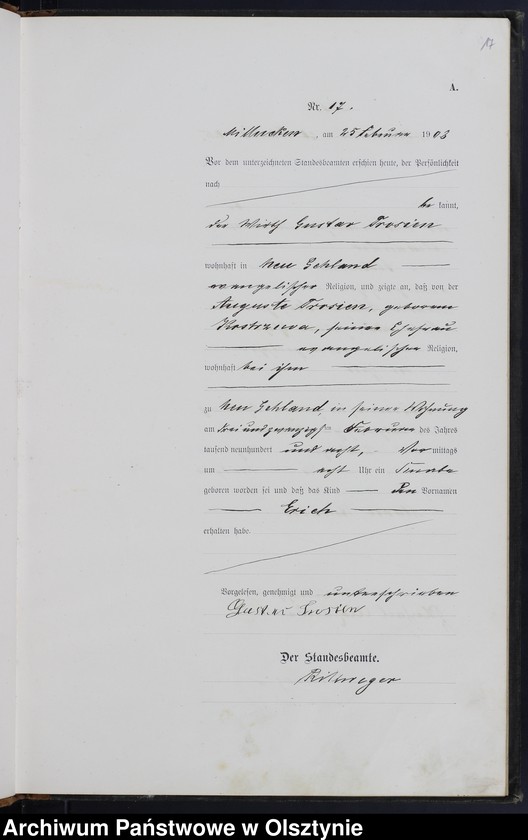 17
A.
Nr. 17.
, am 25 Februar 1908
Vor dem unterzeichneten Standesbeamten erschien heute, der Persönlichkeit
nach
be kannt,
der Wirth Gustav Trosien
wohnhaft in Neu Gehland
evangelischer Religion, und zeigte an, daß von der
Auguste Trosien, geborenen
Kostrzewa, seiner Ehefrau
evangelischer Religion,
wohnhaft bei ihm
zu Neu Gehland, in seiner Wohnung
am dreiundzwanzigsten Februar des Jahres
tausend neunhundert und acht, Vor mittags
um acht Uhr ein Knabe
geboren worden sei und daß das Kind den Vornamen
Erich
erhalten habe.
Vorgelesen, genehmigt und unterschrieben
Gustav Trosien
Der Standesbeamte.
Archiwum Państwowe w Olsztynie